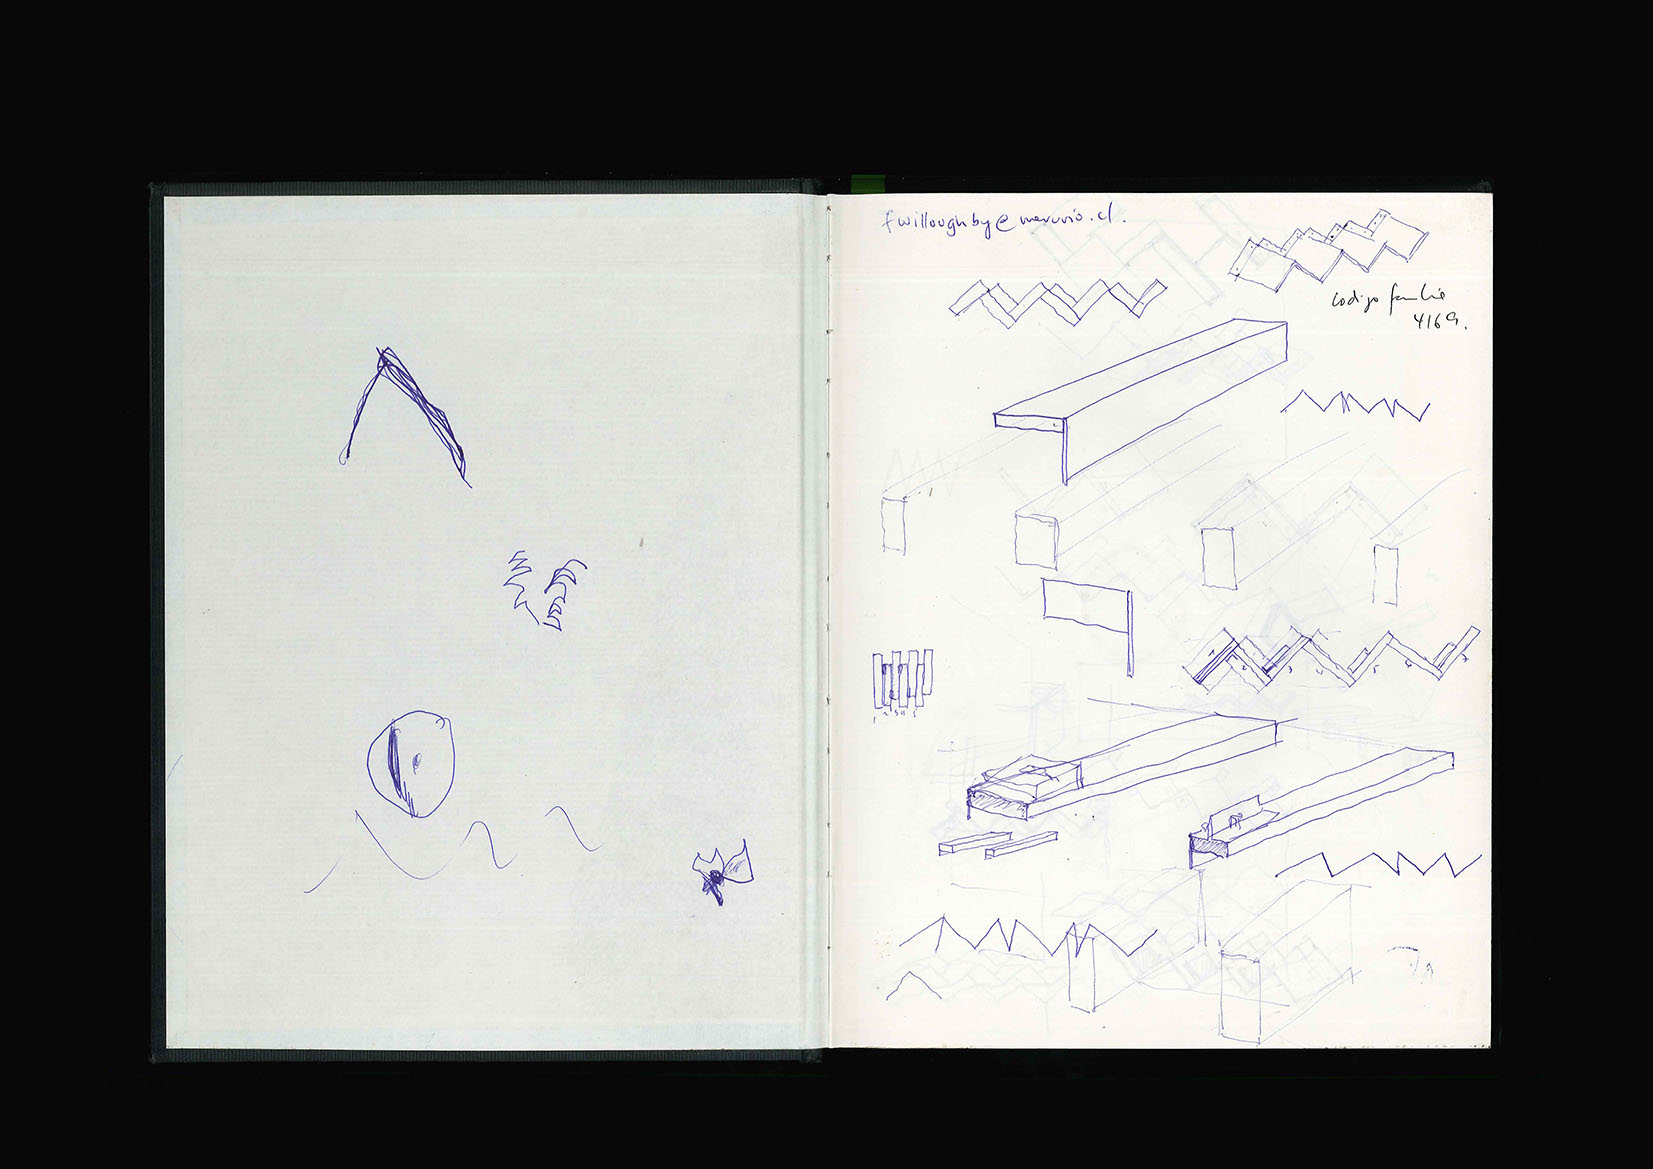 fwilloughby@mercurio.cl.
codigo familia
4169.
1 2 3 4 5
1 2 3 4 5 6 7